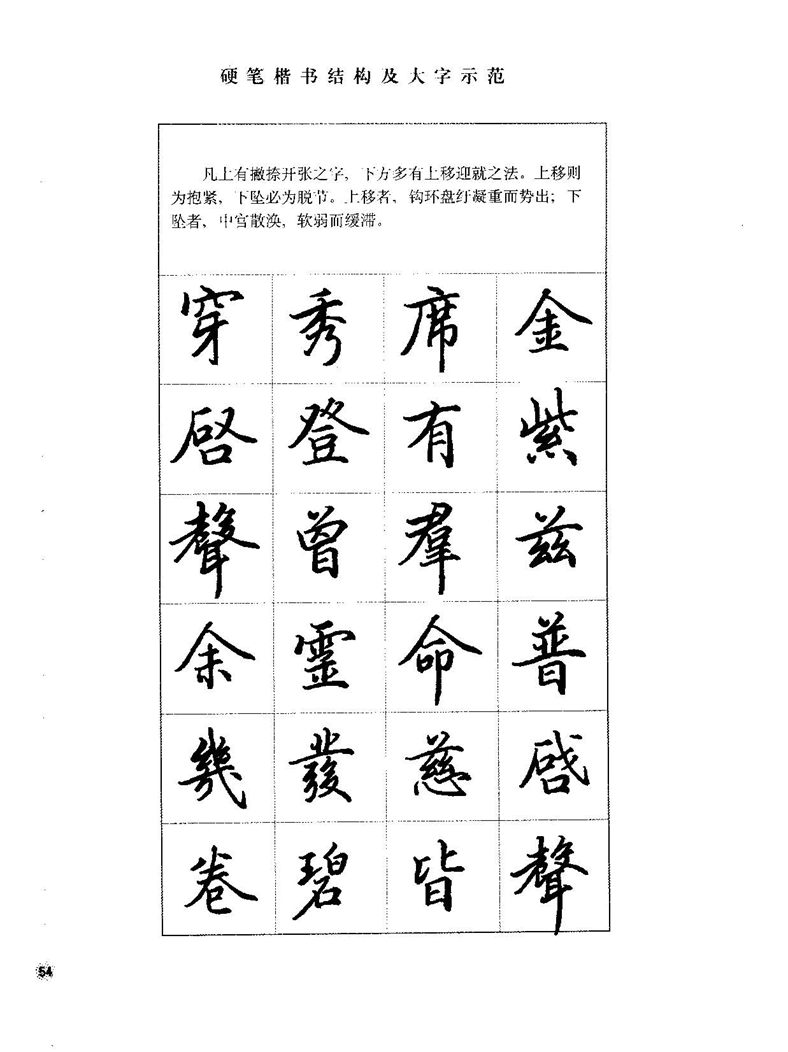 硬笔楷书结构及大字示范
凡上有撇捺开张之字，下方多有上移迎就之法。上移则
为抱紧，下坠必为脱节。上移者，钩环盘纡凝重而势出；下
坠者，中宫散涣，软弱而缓滞。
穿 秀 席 金
啓 登 有 紫
聲 曾 羣 兹
余 靈 命 普
幾 發 慈 啓
卷 碧 皆 聲
54